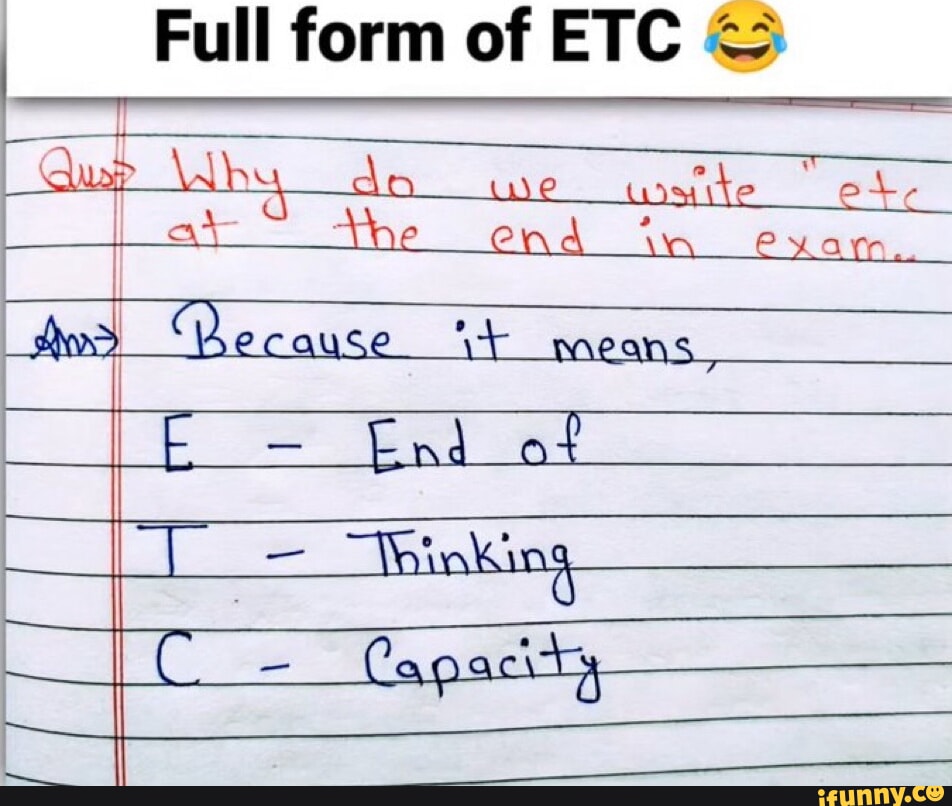 Full form of ETC 😂
Ques→ Why do we write "etc
at the end in exam..
Ans→ Because it means,
E - End of
T - Thinking
C - Capacity
ifunny.co